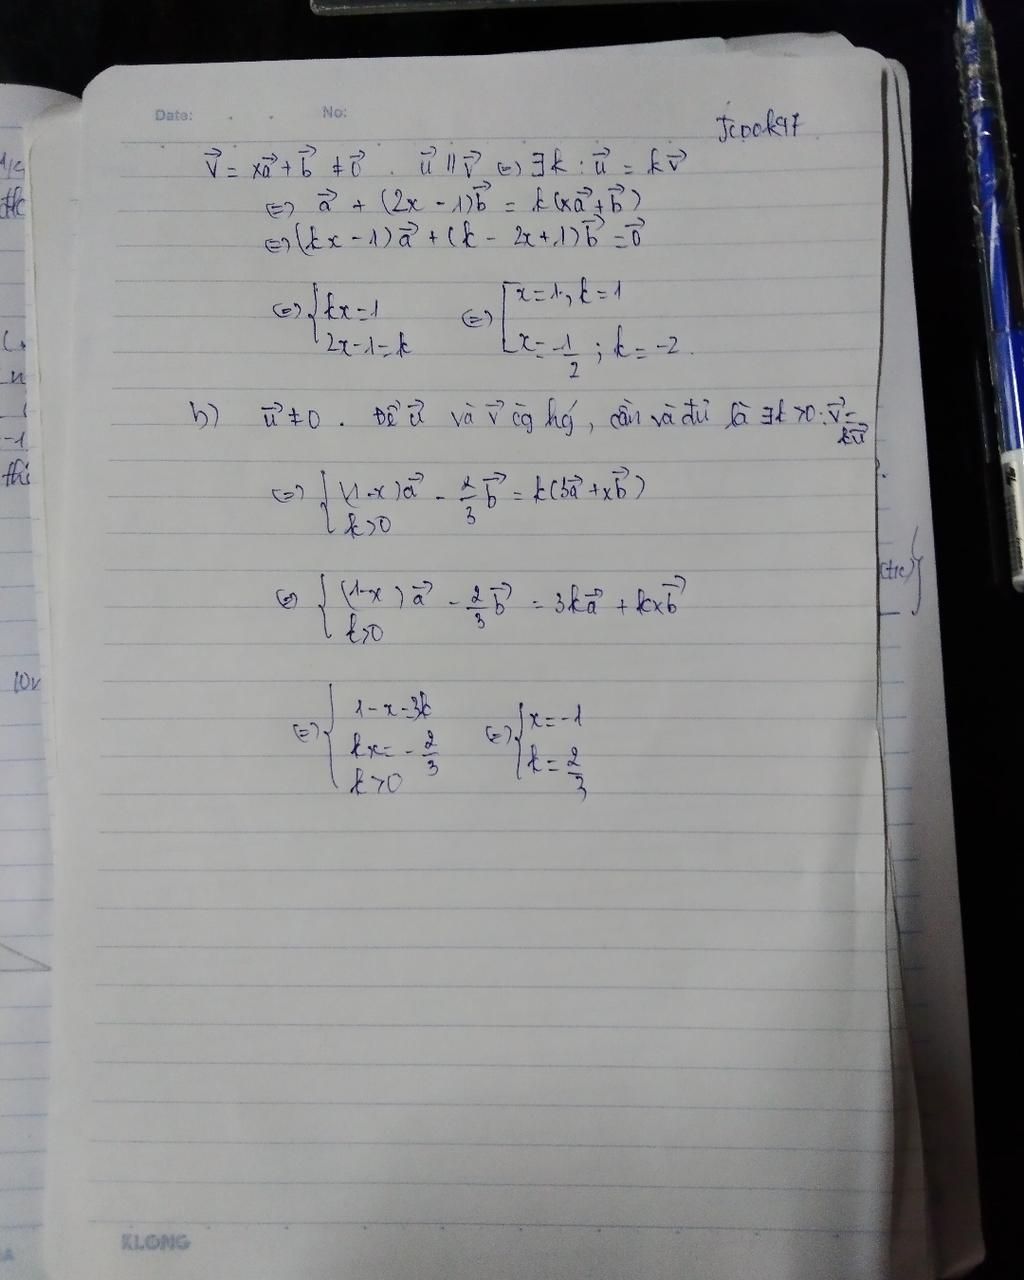 Date: . . No:
Jcook97
v⃗ = xa⃗ + b⃗ ≠ 0⃗ . u⃗ // v⃗ (=) ∃k : u⃗ = kv⃗
(=) a⃗ + (2x - 1)b⃗ = k(xa⃗ + b⃗)
(=) (kx - 1)a⃗ + (k - 2x + 1)b⃗ = 0⃗
(=) { kx = 1 (=) [ x = 1, k = 1
2x - 1 = k x = -1/2 ; k = -2.
b) u⃗ ≠ 0 . Để u⃗ và v⃗ cg hg, cần và đủ là ∃k > 0 : v⃗ =
ku⃗
(=) { (1-x)a⃗ - 2/3 b⃗ = k(3a⃗ + xb⃗)
k > 0
(=) { (1-x)a⃗ - 2/3 b⃗ = 3ka⃗ + kxb⃗
k > 0
(=) { 1 - x = 3k (=) { x = -1
kx = - 2/3 k = 2/3
k > 0
KLONG
10v
-1